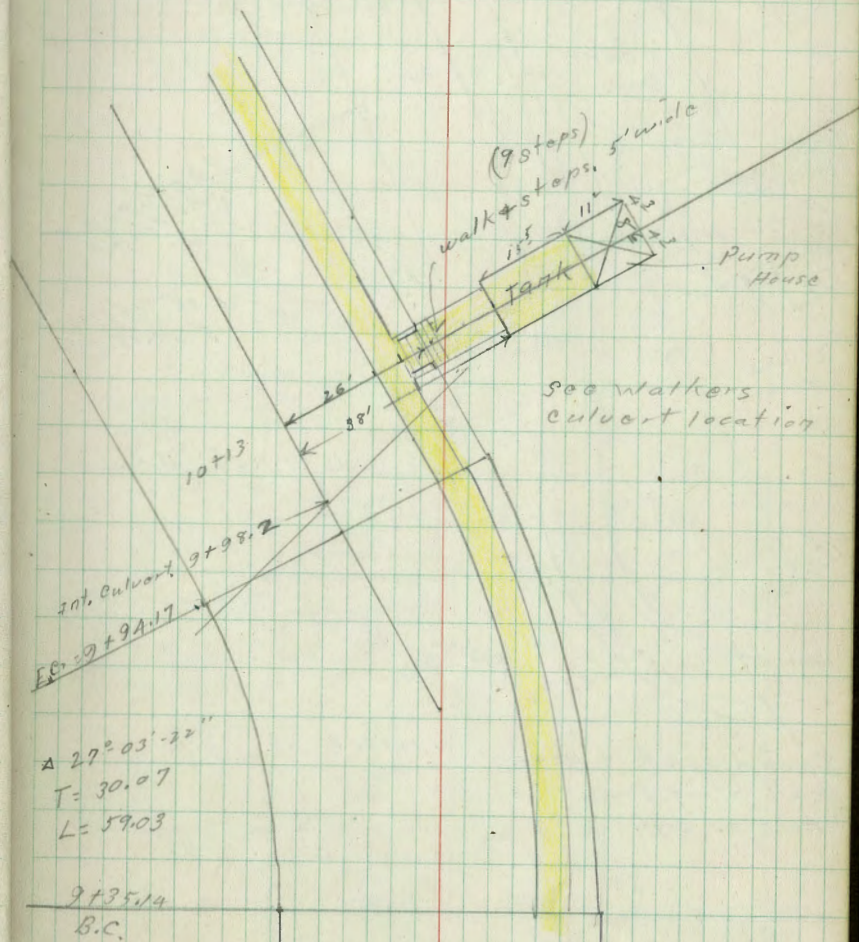 (9 steps)
walk & steps. 5' wide
11'
15.5
Tank
Pump
House
26'
38'
See Walkers
culvert location
10+13
Int. Culvert 9+98.2
E.C. = 9+94.17
Δ 27°-03'-22"
T= 30.07
L= 59.03
9+35.14
B.C.